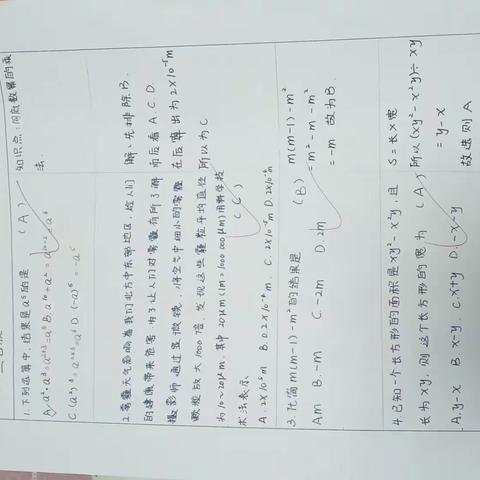 1.下列运算中,结果是a⁵的是 (A)
A.a²·a³=a²⁺³=a⁵ B.a¹⁰÷a²=a¹⁰⁻²=a⁸
C.(a²)³=a²ˣ³=a⁶ D.(-a)⁵=-a⁵
知识点:同底数幂的乘
法
2.雾霾天气影响着我们北方中东部地区,给人们
的健康带来危害,为了让人们对雾霾有所了解
摄影师通过显微镜,将空气中细小的霾
颗粒放大1000倍,发现这些霾粒平均直径
为10~20μm,其中20μm(1m=1000 000μm)用科学技
术法表示 (C)
A.2X10⁵m B.0.2X10⁻⁴m C.2X10⁻⁵m D.2X10⁻⁴m
解:先排除B.
而后看A.C.D.
在后算出为2X10⁻⁵m
所以为C
3.化简m(m-1)-m²的结果是 (B)
A.m B.-m C.-2m D.2m
m(m-1)-m²
=m²-m-m²
=-m 故为B.
4.已知一个长方形的面积是xy²-x²y,且
长为xy,则这个长方形的宽为 (A)
A.y-x B.x-y C.x+y D.-x-y
S=长X宽
所以(xy²-x²y)÷xy
=y-x
故选则A